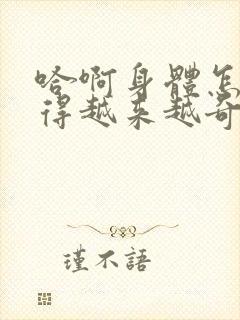 哈啊身體怎
得越来越奇
瑾不語